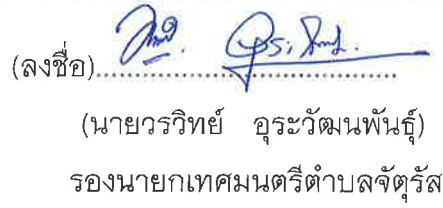 (ลงชื่อ)
(นายวรวิทย์ อุระวัฒนพันธุ์)
รองนายกเทศมนตรีตำบลจัตุรัส